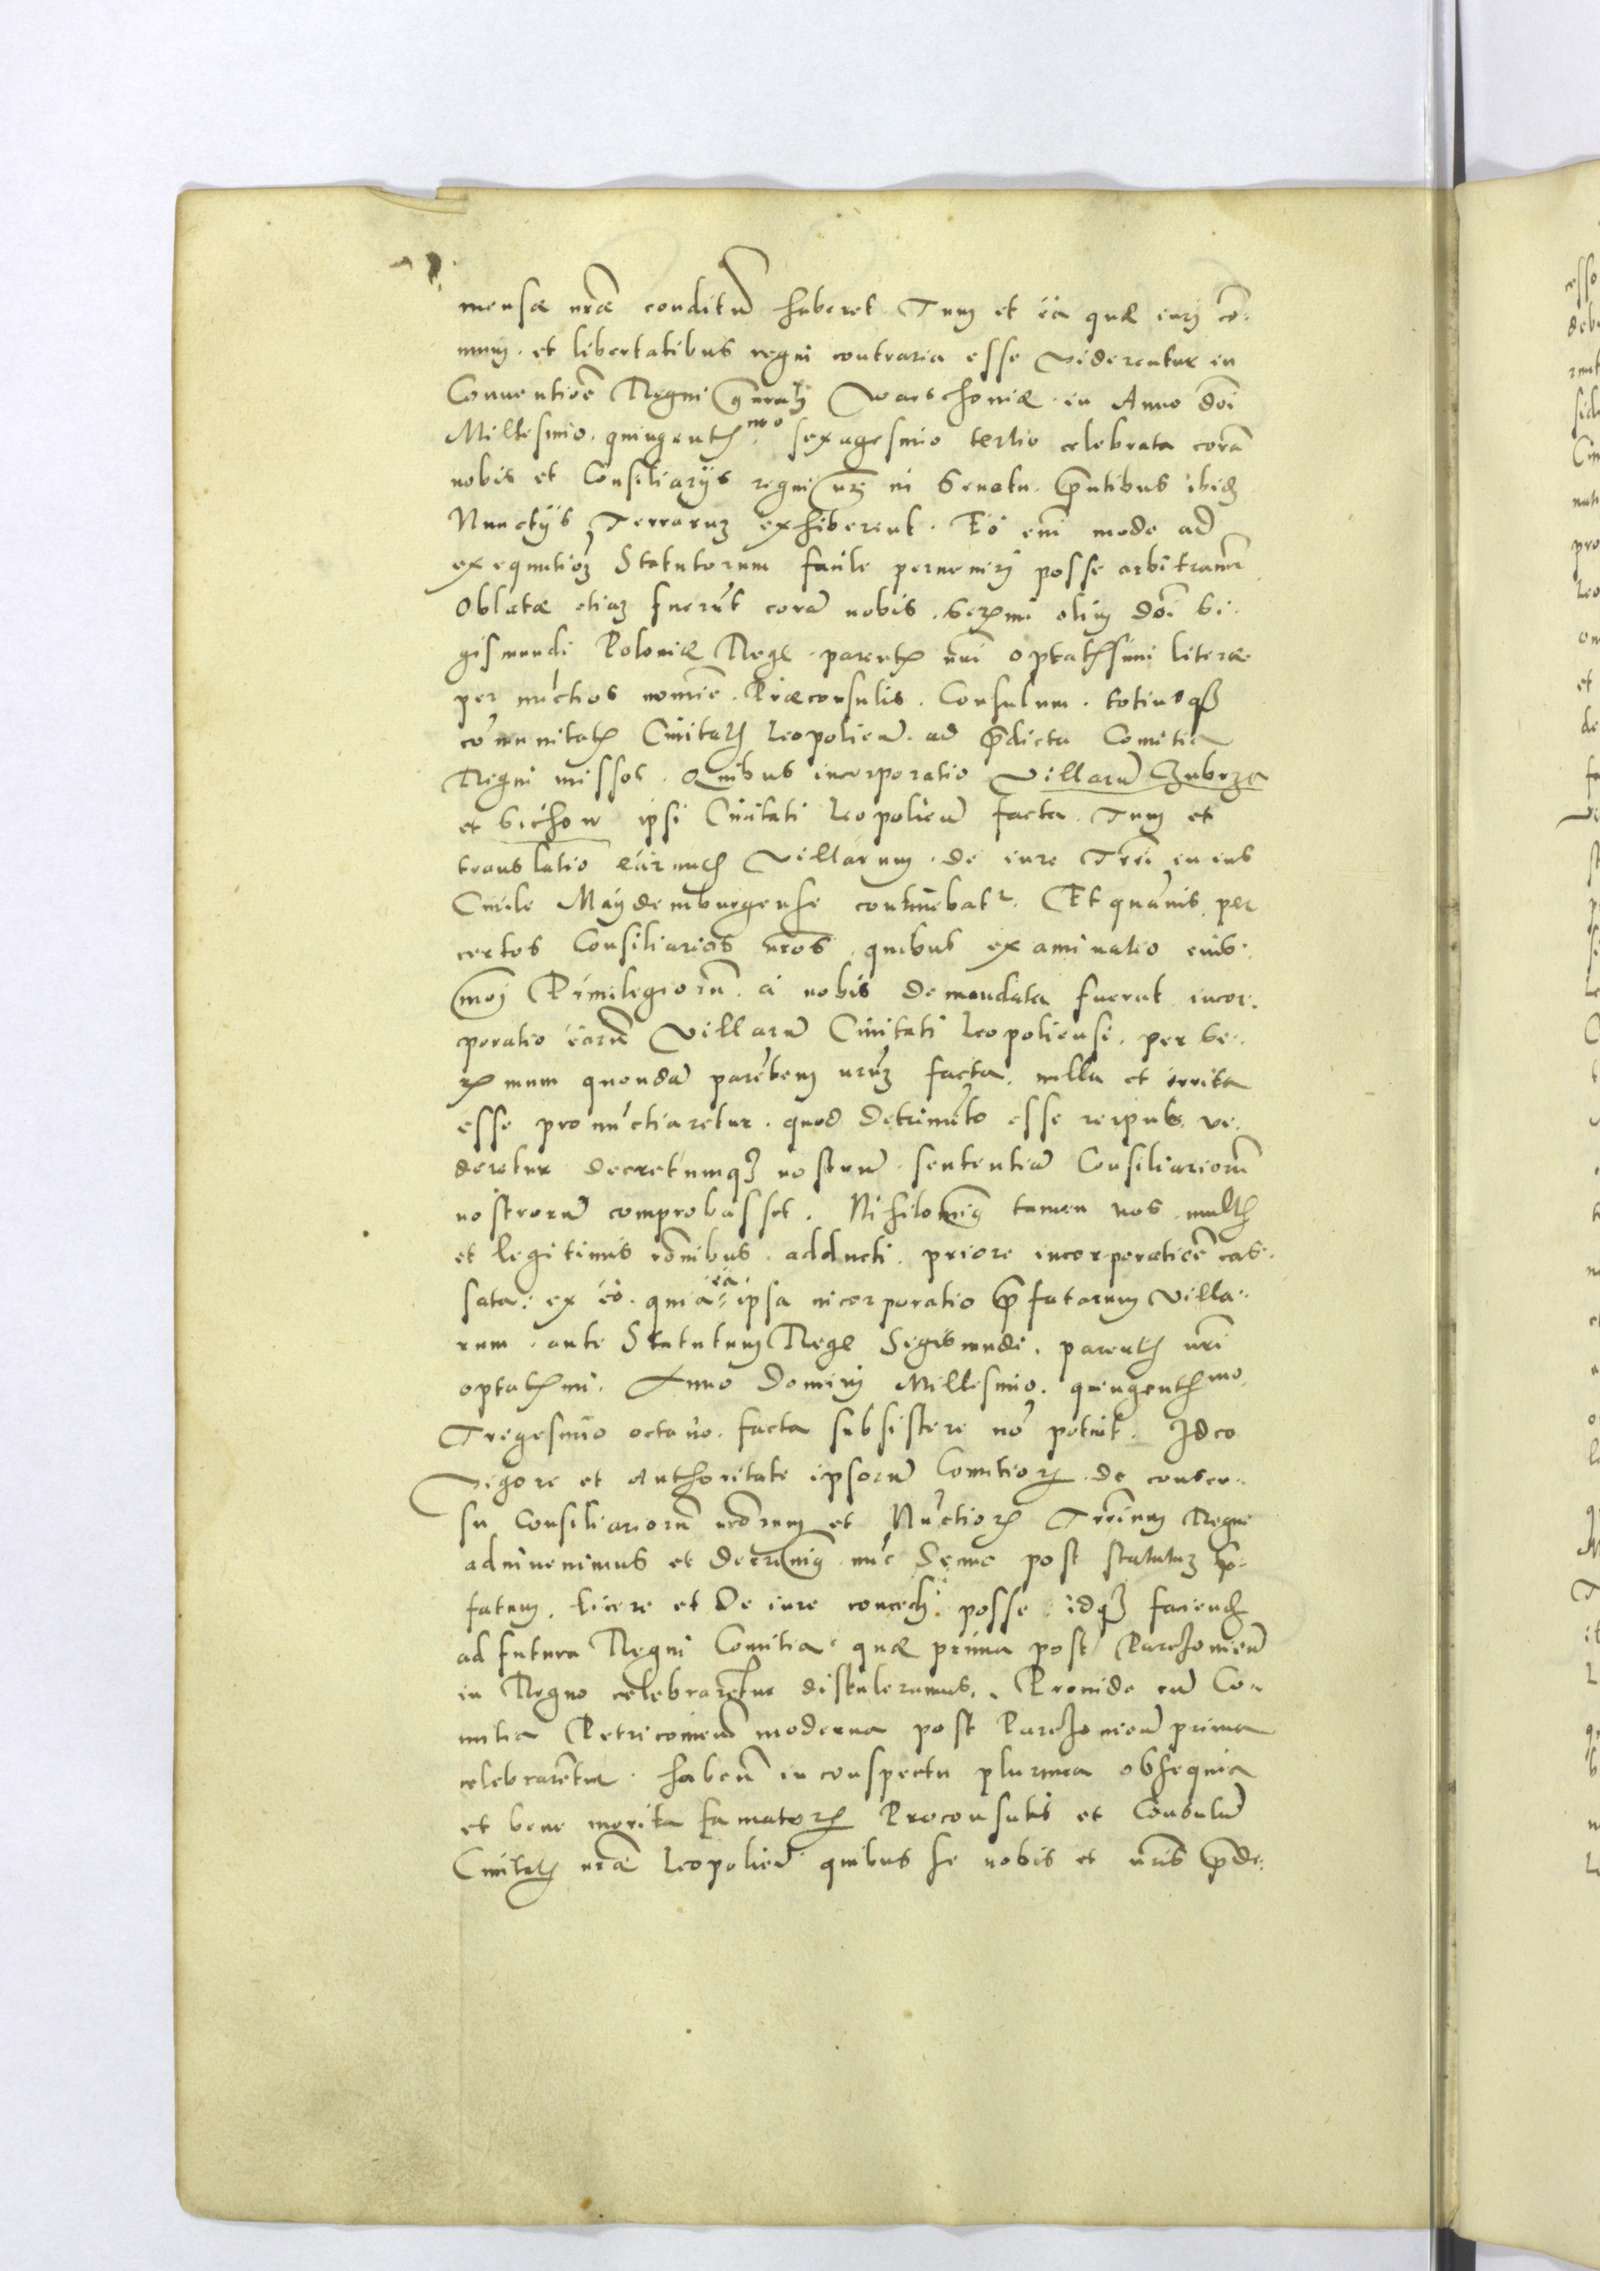 mensæ nr̃æ conditũ haberet. Tum et ea quæ iuri cõ-
muni. et libertatibus regni contraria esse viderentur in
Conuentiõe Regni gñrali Warschoviæ. in Anno Dñi
Millesimo. quingentesmo sexagesimo tertio celebrata corã
nobis et Consiliarijs regni nr̃i in Senatu. p̃ntibus ibidẽ
Nunctijs Terrarum exhiberent. Eo em̃ modo ad
exequutiõẽ Statutorum facile perueniri posse arbitramr̃
Oblatæ etiam fuerũt corã nobis. Serẽmi olim Dñi Si-
gismundi Poloniæ Regis parentis nr̃i optatissimi literæ
per nũctios nomie. Præconsulis. Consulum. totiusq̃
cõmunitatis Ciuitatis Leopolien̄. ad p̃dicta Comitia
Regni missos. Quibus incorporatio Villarũ Zubrza
et Sichow ipsi Ciuitati Leopolien̄ facta. Tum et
translatio earundẽ Villarum. de iure Trr̃i in ius
Ciuile Maydemburgense continebatr. Et quãuis per
certos Consiliarios nr̃os. quibus examinatio eius-
mõi Priuilegiorũ. a nobis demandata fuerat incor-
poratio earũ Villarũ Ciuitati Leopoliensi. per Se-
rẽmum quondã parẽtem nr̃um facta. nulla et irrita
esse pronũctiaretur. quod detrimẽto esse reipub. vi-
deretur decretumq̃ nostrum. sententiã Consiliariorũ
nostrorũ comprobasset. Nihilominus tamen nos. multis
et legitimis rõnibus. adducti. priore incorporatiõe cas-
sata: ex eo. quia ea ipsa incorporatio p̃fatarum Villa-
rum. ante Statutum Regis Sigismũdi. parentis nr̃i
optatissimi. Anno Domini Millesimo. quingentesmo
Trigesimo octauo. facta subsistere nõ potuit. Ideo
Vigore et authoritate ipsorũ Comitiorum de consen-
su Consiliariorũ nr̃orum et Nũctiorum Trr̃arum Regni
adinuenimus et decreuimus nũc Secus post statutum p̃-
fatum. licere et de iure concedi posse. idq̃ faciendũ
ad futura Regni Comitia. quæ prima post Parczouien̄
in Regno celebrarẽtur distuleramus. Proinde cũ Co-
mitia Petricouien̄ moderna post Parczouien̄ prima
celebrarẽtur. haben̄ in conspectu plurima obsequia
et bene merita famatorum Proconsulis et Consulũ
Ciuitatis nr̃æ Leopolien̄ quibus se nobis et nr̃is p̃de-